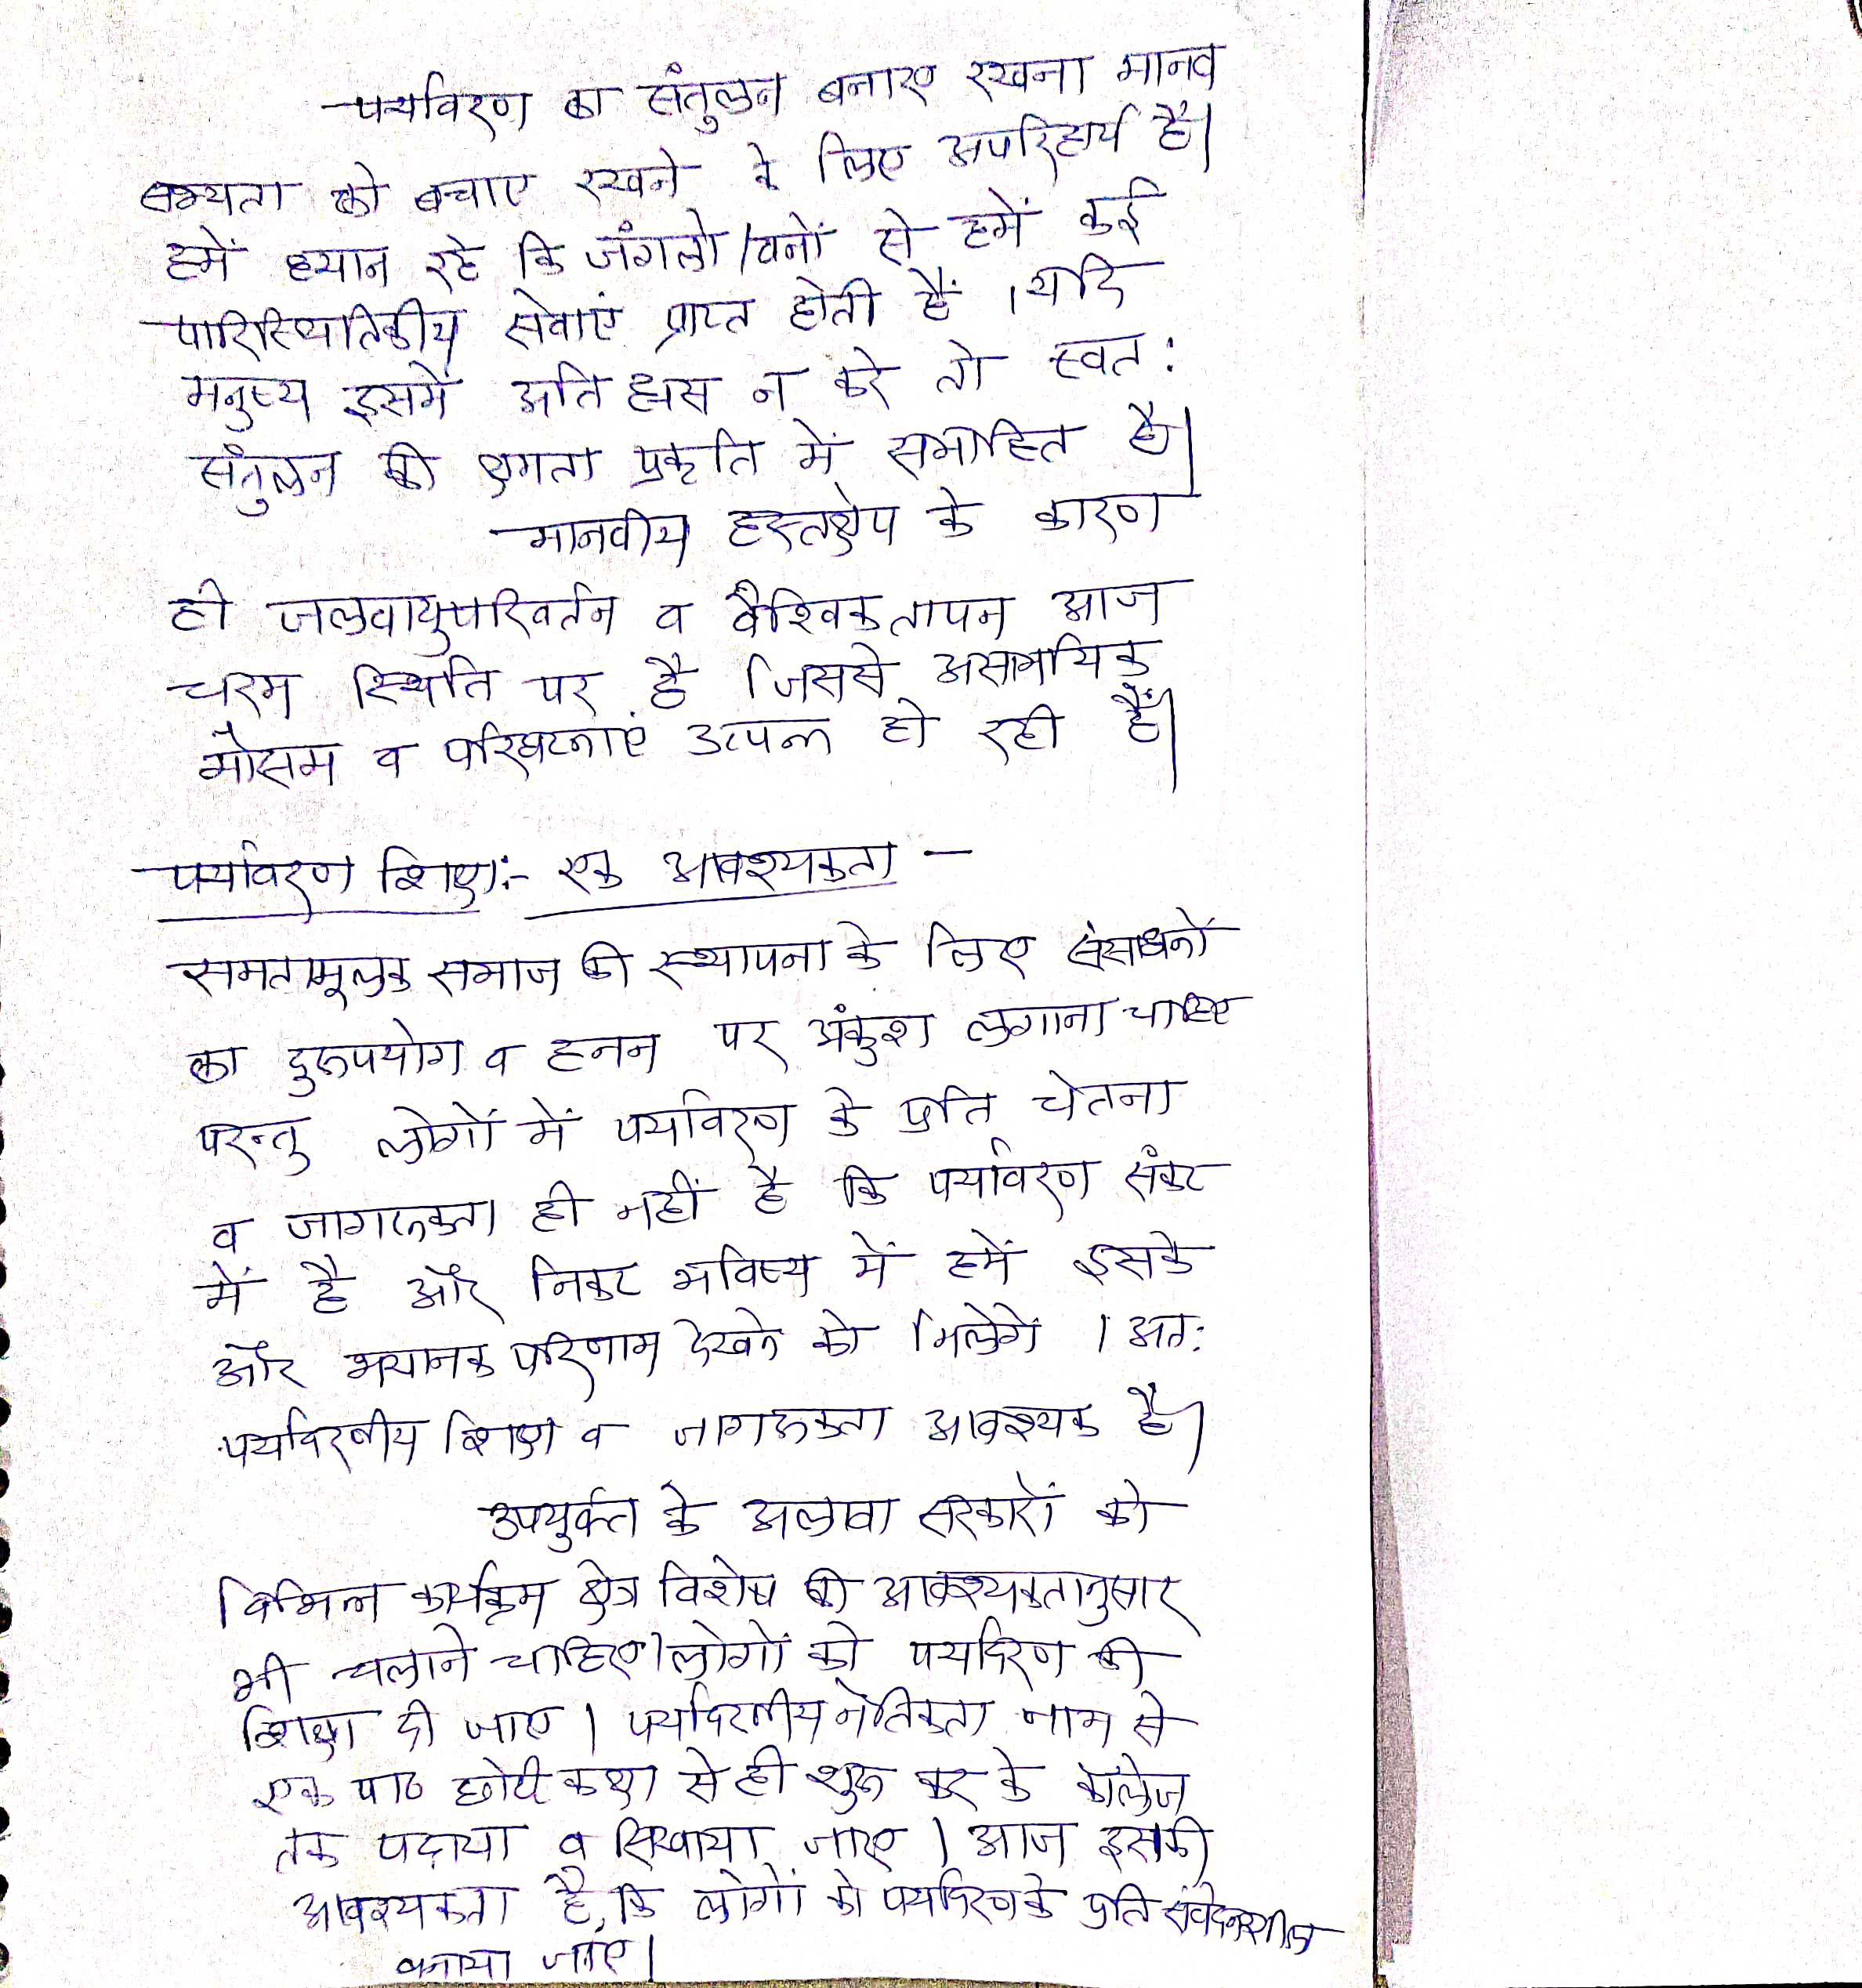 पर्यावरण का संतुलन बनाए रखना मानव
सभ्यता को बचाए रखने के लिए अपरिहार्य है।
हमें ध्यान रहे कि जंगलो/वनों से हमें कई
पारिस्थितिकीय सेवाएं प्राप्त होती हैं । यदि
मनुष्य इसमें अति ह्रास न करे तो स्वत:
संतुलन की क्षमता प्रकृति में समाहित है।
मानवीय हस्तक्षेप के कारण
ही जलवायुपरिवर्तन व वैश्विकतापन आज
चरम स्थिति पर है जिससे असामयिक
मौसम व परिघटनाएं उत्पन्न हो रही हैं।
पर्यावरण शिक्षा:- एक आवश्यकता -
समतामूलक समाज की स्थापना के लिए संसाधनों
का दुरुपयोग व हनन पर अंकुश लगाना चाहिए
परन्तु लोगों में पर्यावरण के प्रति चेतना
व जागरूकता ही नहीं है कि पर्यावरण संकट
में है और निकट भविष्य में हमें इसके
और भयानक परिणाम देखने को मिलेगे । अत:
पर्यावरणीय शिक्षा व जागरूकता आवश्यक है।
उपर्युक्त के अलावा सरकारों को
विभिन्न कार्यक्रम क्षेत्र विशेष की आवश्यकतानुसार
भी चलाने चाहिए। लोगों को पर्यावरण की
शिक्षा दी जाए । पर्यावरणीय नैतिकता नाम से
एक पाठ छोटी कक्षा से ही शुरू कर के कॉलेज
तक पढ़ाया व सिखाया जाए । आज इसकी
आवश्यकता है, कि लोगों को पर्यावरण के प्रति संवेदनशील
बनाया जाए।